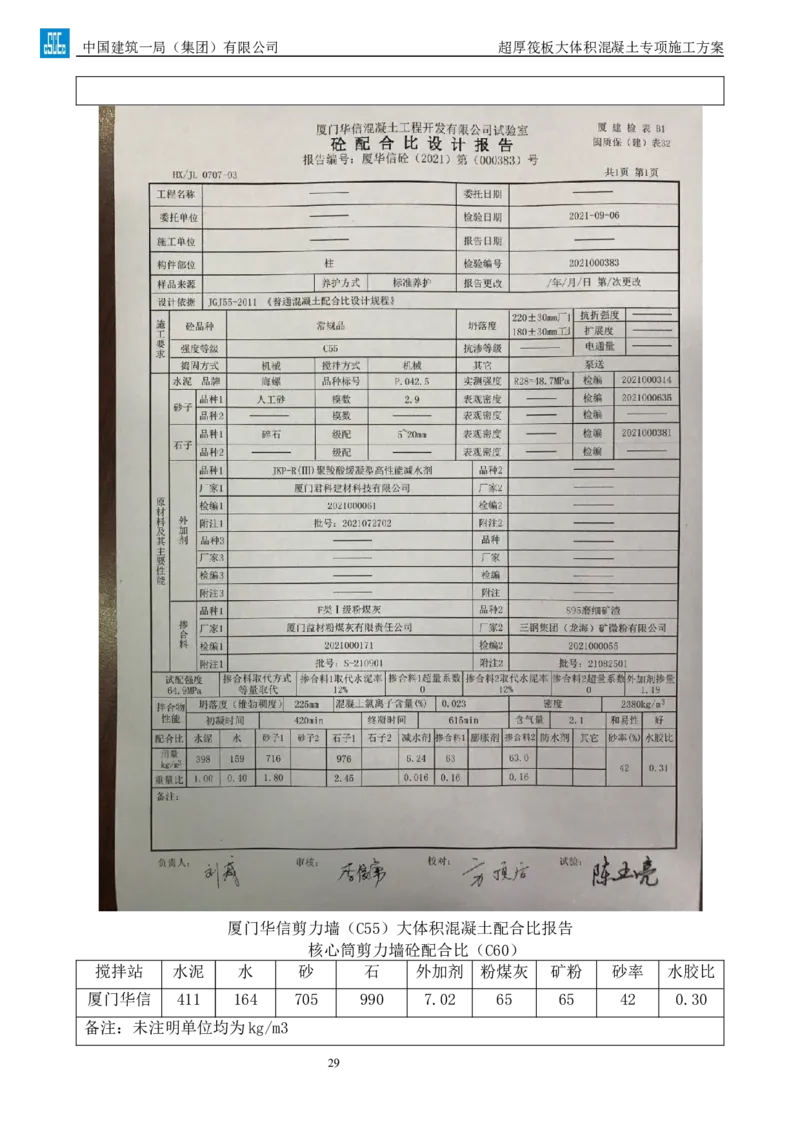 中国建筑一局（集团）有限公司 超厚筏板大体积混凝土专项施工方案
厦门华信混凝土工程开发有限公司试验室 厦建检表B1
砼配合比设计报告 闽质保（建）表32
报告编号：厦华信砼（2021）第（000383）号
HX/JL 0707-03 共1页 第1页
工程名称 —— 委托日期 ——
委托单位 —— 检验日期 2021-09-06
施工单位 —— 报告日期 ——
构件部位 柱 检验编号 2021000383
样品来源 养护方式 标准养护 报告更改 /年/月/日 第/次更改
设计依据 JGJ55-2011 《普通混凝土配合比设计规程》
施工要求 砼品种 常规品 坍落度 220±30mm 抗折强度 ——
180±30mm 扩展度 ——
强度等级 C55 抗渗等级 —— 电通量 ——
捣固方式 机械 搅拌方式 机械 其它 泵送
原材料及其主要性能
水泥 品牌 海螺 品种标号 P.O42.5 实测强度 R28=48.7MPa 检编 2021000314
砂子 品种1 人工砂 模数 2.9 表观密度 —— 检编 2021000635
品种2 —— 模数 —— 表观密度 —— 检编 ——
石子 品种1 碎石 级配 5~20mm 表观密度 —— 检编 2021000381
品种2 —— 级配 —— 表观密度 —— 检编 ——
外加剂 品种1 JKP-R(Ⅲ)聚羧酸缓凝型高性能减水剂 品种2 ——
厂家1 厦门君科建材科技有限公司 厂家2 ——
检编1 2021000061 检编2 ——
附注1 批号：2021072702 附注2 ——
品种3 —— 品种 ——
厂家3 —— 厂家 ——
检编3 —— 检编 ——
附注3 —— 附注 ——
掺合料 品种1 F类Ⅰ级粉煤灰 品种2 S95磨细矿渣
厂家1 厦门益材粉煤灰有限责任公司 厂家2 三钢集团（龙海）矿微粉有限公司
检编1 2021000171 检编2 2021000055
附注1 批号：S-210901 附注2 批号：21082501
试配强度 掺合料取代方式 掺合料1取代水泥率 掺合料1超量系数 掺合料2取代水泥率 掺合料2超量系数 外加剂掺量
64.9MPa 等量取代 12% 0 12% 0 1.19
拌合物性能 坍落度（维勃稠度） 225mm 混凝土氯离子含量(%) 0.023 密度 2380kg/m³
初凝时间 420min 终凝时间 615min 含气量 2.1 和易性 好
配合比 水泥 水 砂子1 砂子2 石子1 石子2 减水剂 掺合料1 膨胀剂 掺合料2 防水剂 其它 砂率(%) 水胶比
用量kg/m³ 398 159 716 976 6.24 63 63.0 42 0.31
重量比 1.00 0.40 1.80 2.45 0.016 0.16 0.16
备注：
负责人： 审核： 校对： 试验： 陈玉亮
厦门华信剪力墙（C55）大体积混凝土配合比报告
核心筒剪力墙砼配合比（C60）
搅拌站 水泥 水 砂 石 外加剂 粉煤灰 矿粉 砂率 水胶比
厦门华信 411 164 705 990 7.02 65 65 42 0.30
备注：未注明单位均为kg/m3
29